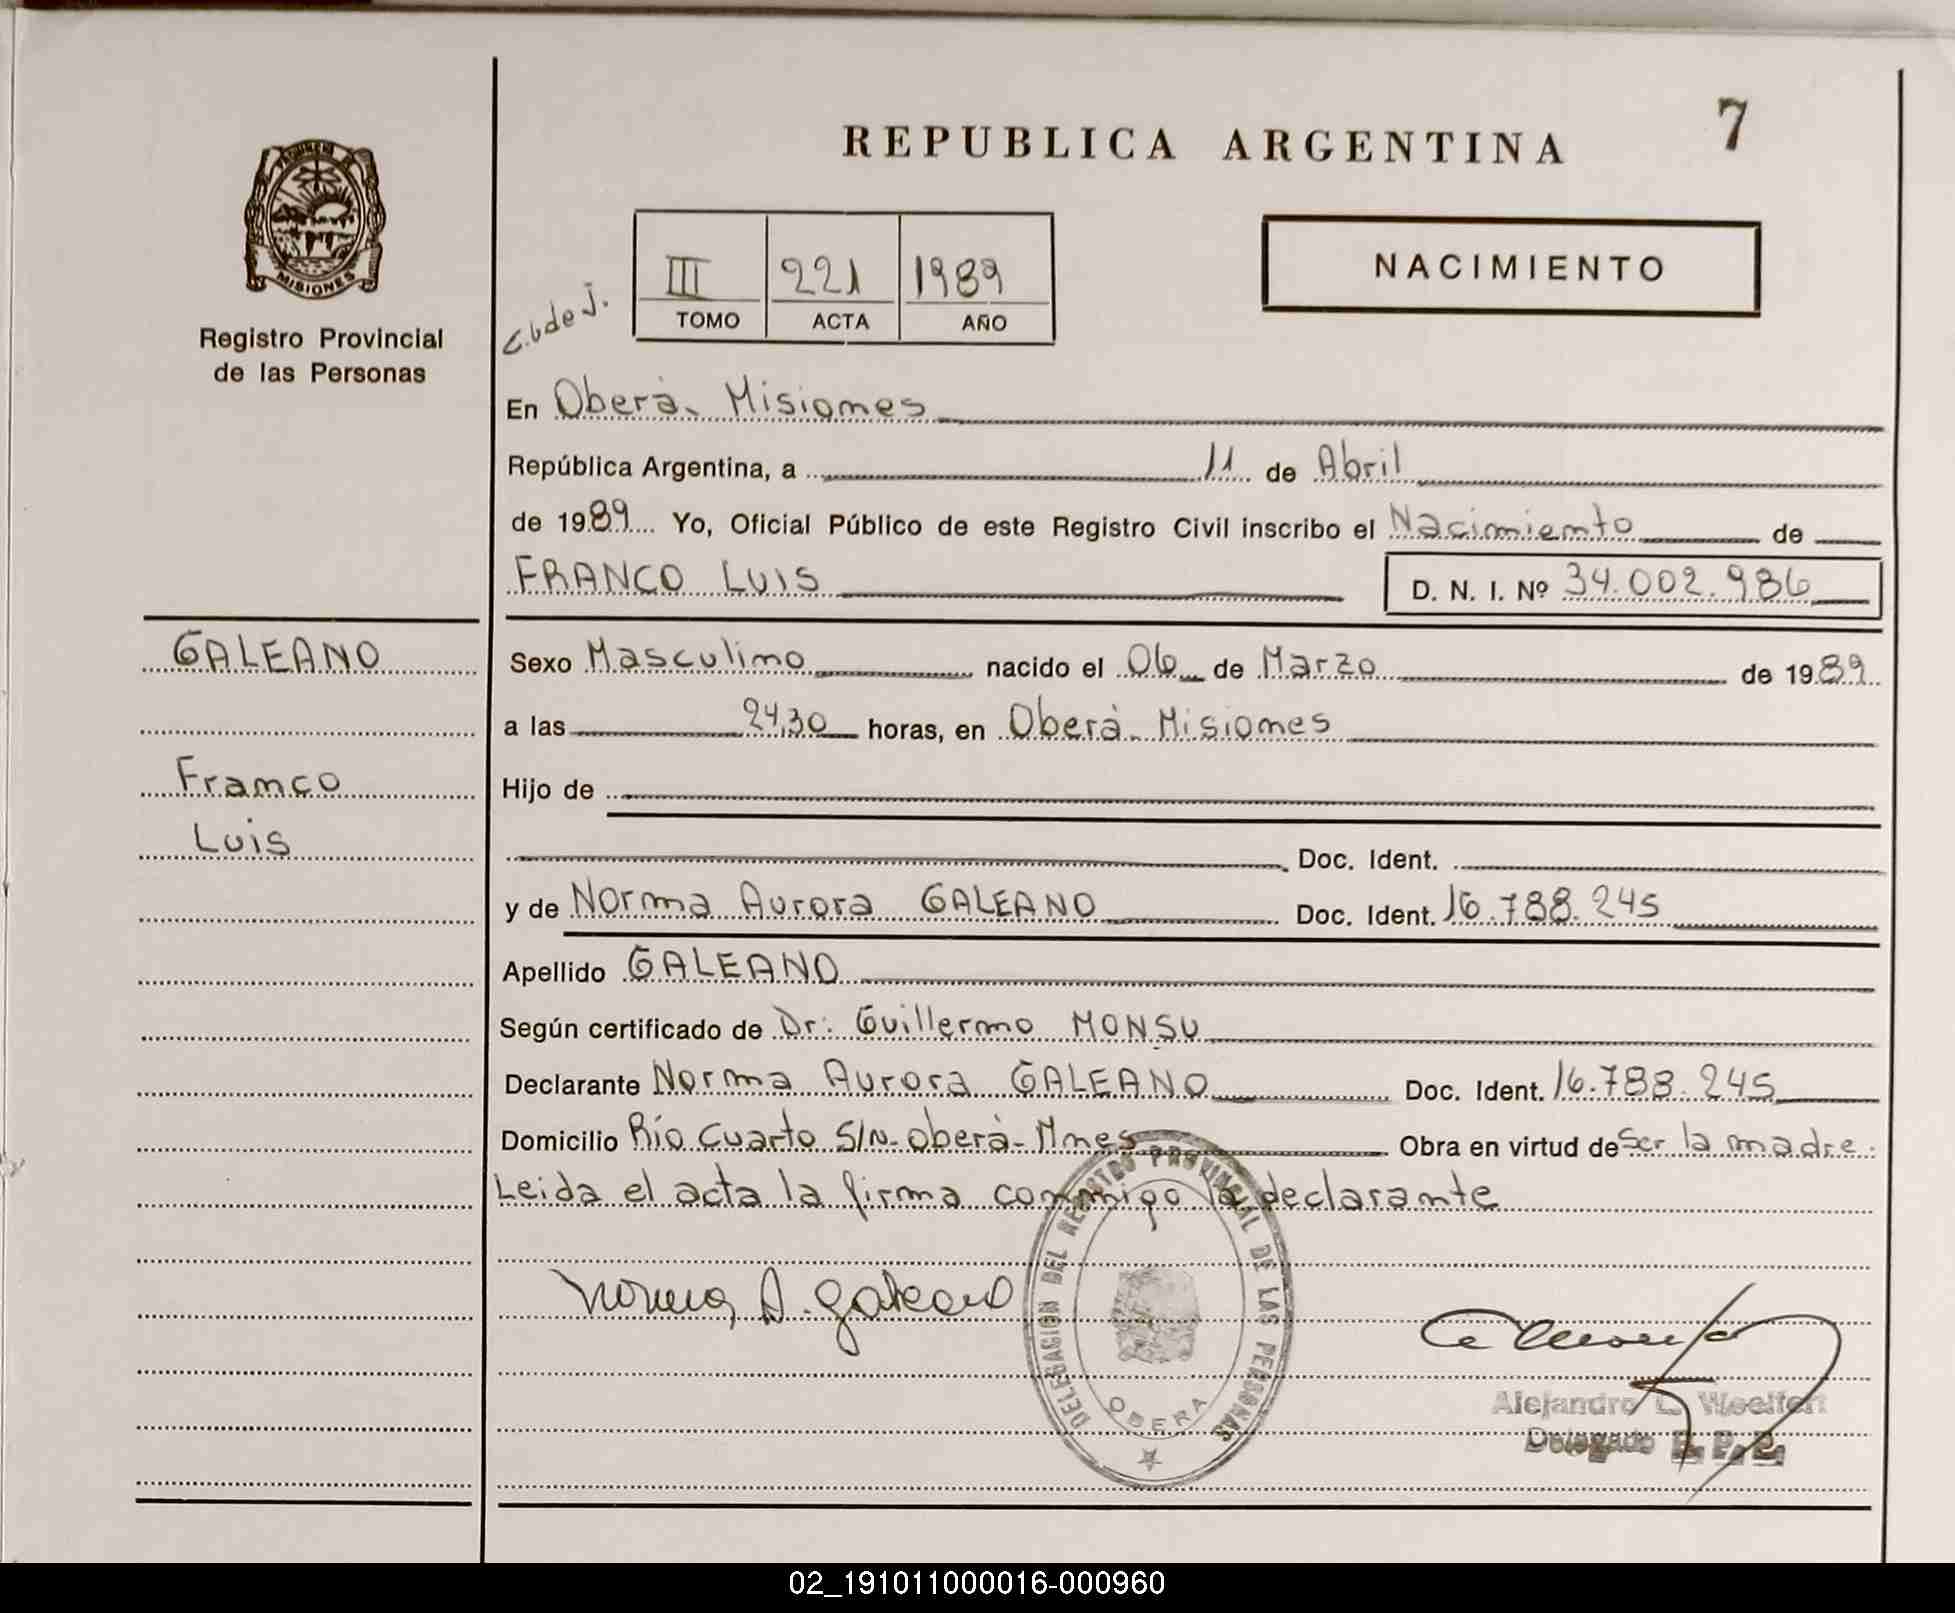 REPUBLICA ARGENTINA
7
PROVINCIA DE
MISIONES
Registro Provincial
de las Personas
III 221 1989
TOMO ACTA AÑO
NACIMIENTO
En Oberà. Misiones
República Argentina, a 11 de Abril
de 1989 Yo, Oficial Público de este Registro Civil inscribo el Nacimiento de
FRANCO LUIS D. N. I. Nº 34.002.986
GALEANO
Franco
Luis
Sexo Masculino nacido el 06 de Marzo de 1989
a las 24,30 horas, en Oberà. Misiones
Hijo de
Doc. Ident.
y de Norma Aurora GALEANO Doc. Ident. 16.788.245
Apellido GALEANO
Según certificado de Dr: Guillermo MONSU
Declarante Norma Aurora GALEANO Doc. Ident. 16.788.245
Domicilio Río Cuarto S/N-Oberà-Mnes Obra en virtud de Ser la madre.
Leida el acta la firma conmigo la declarante
Norma A. Galeano
DELEGACION DEL REGISTRO PROVINCIAL DE LAS PERSONAS
OBERA
Alejandro L. Woelfert
Delegado R. P. P.
02_191011000016-000960